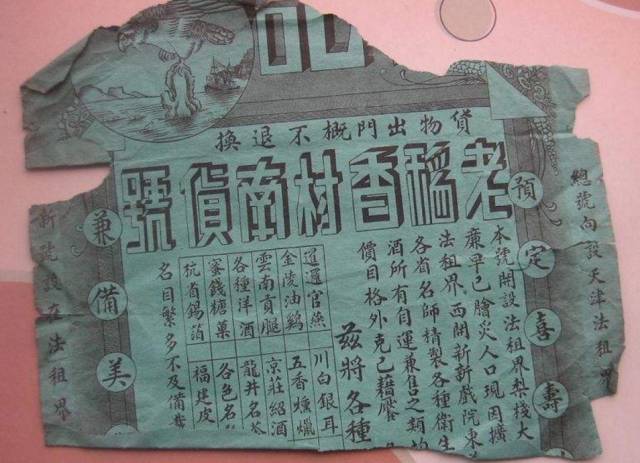 貨物出門概不退換
老稻香村南貨號
總號向設天津法租界
預定喜壽
本號開設法租界梨棧大
廉早已膾炙人口現因擴
法租界西開新新戲院東
各省名師精製各種衛生
酒所有自運兼售之類均
價目格外克己藉酬
茲將各種
暹邏官燕 川白銀耳
金陵油鷄 五香燻臘
雲南貢腿 京莊紹酒
各種洋酒 龍井名茶
蜜餞糖菓 各色名
杭省錫箔 福建皮
名目繁多不及備載
兼備美
新號設在法租界